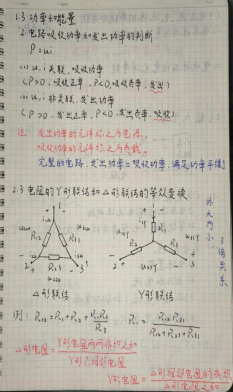 1.3 功率和能量
2.电路吸收功率和发出功率的判断
P=ui
(1) u, i 关联, 吸收功率
(P>0, 吸收正率, P<0, 吸收负率, 发出)
(2) u, i 非关联, 发出功率
(P>0, 发出正率, P<0, 发出负率, 吸收)
注: 发出功率的元件称之为电源,
吸收功率的元件称之为负载。
完整的电路, 发出功率=吸收功率, 满足功率平衡
2.3 电阻的Y形联结和△形联结的等效变换
外大内小
3倍关系
R12 R31
R23
R1
R2 R3
△形联结 Y形联结
例: R12=R1+R2+R1R2/R3 R1=R12R31/R12+R23+R31
△形电阻=Y形电阻两两乘积之和/Y形不相邻电阻
Y形电阻=△形相邻电阻的乘积/△形电阻之和